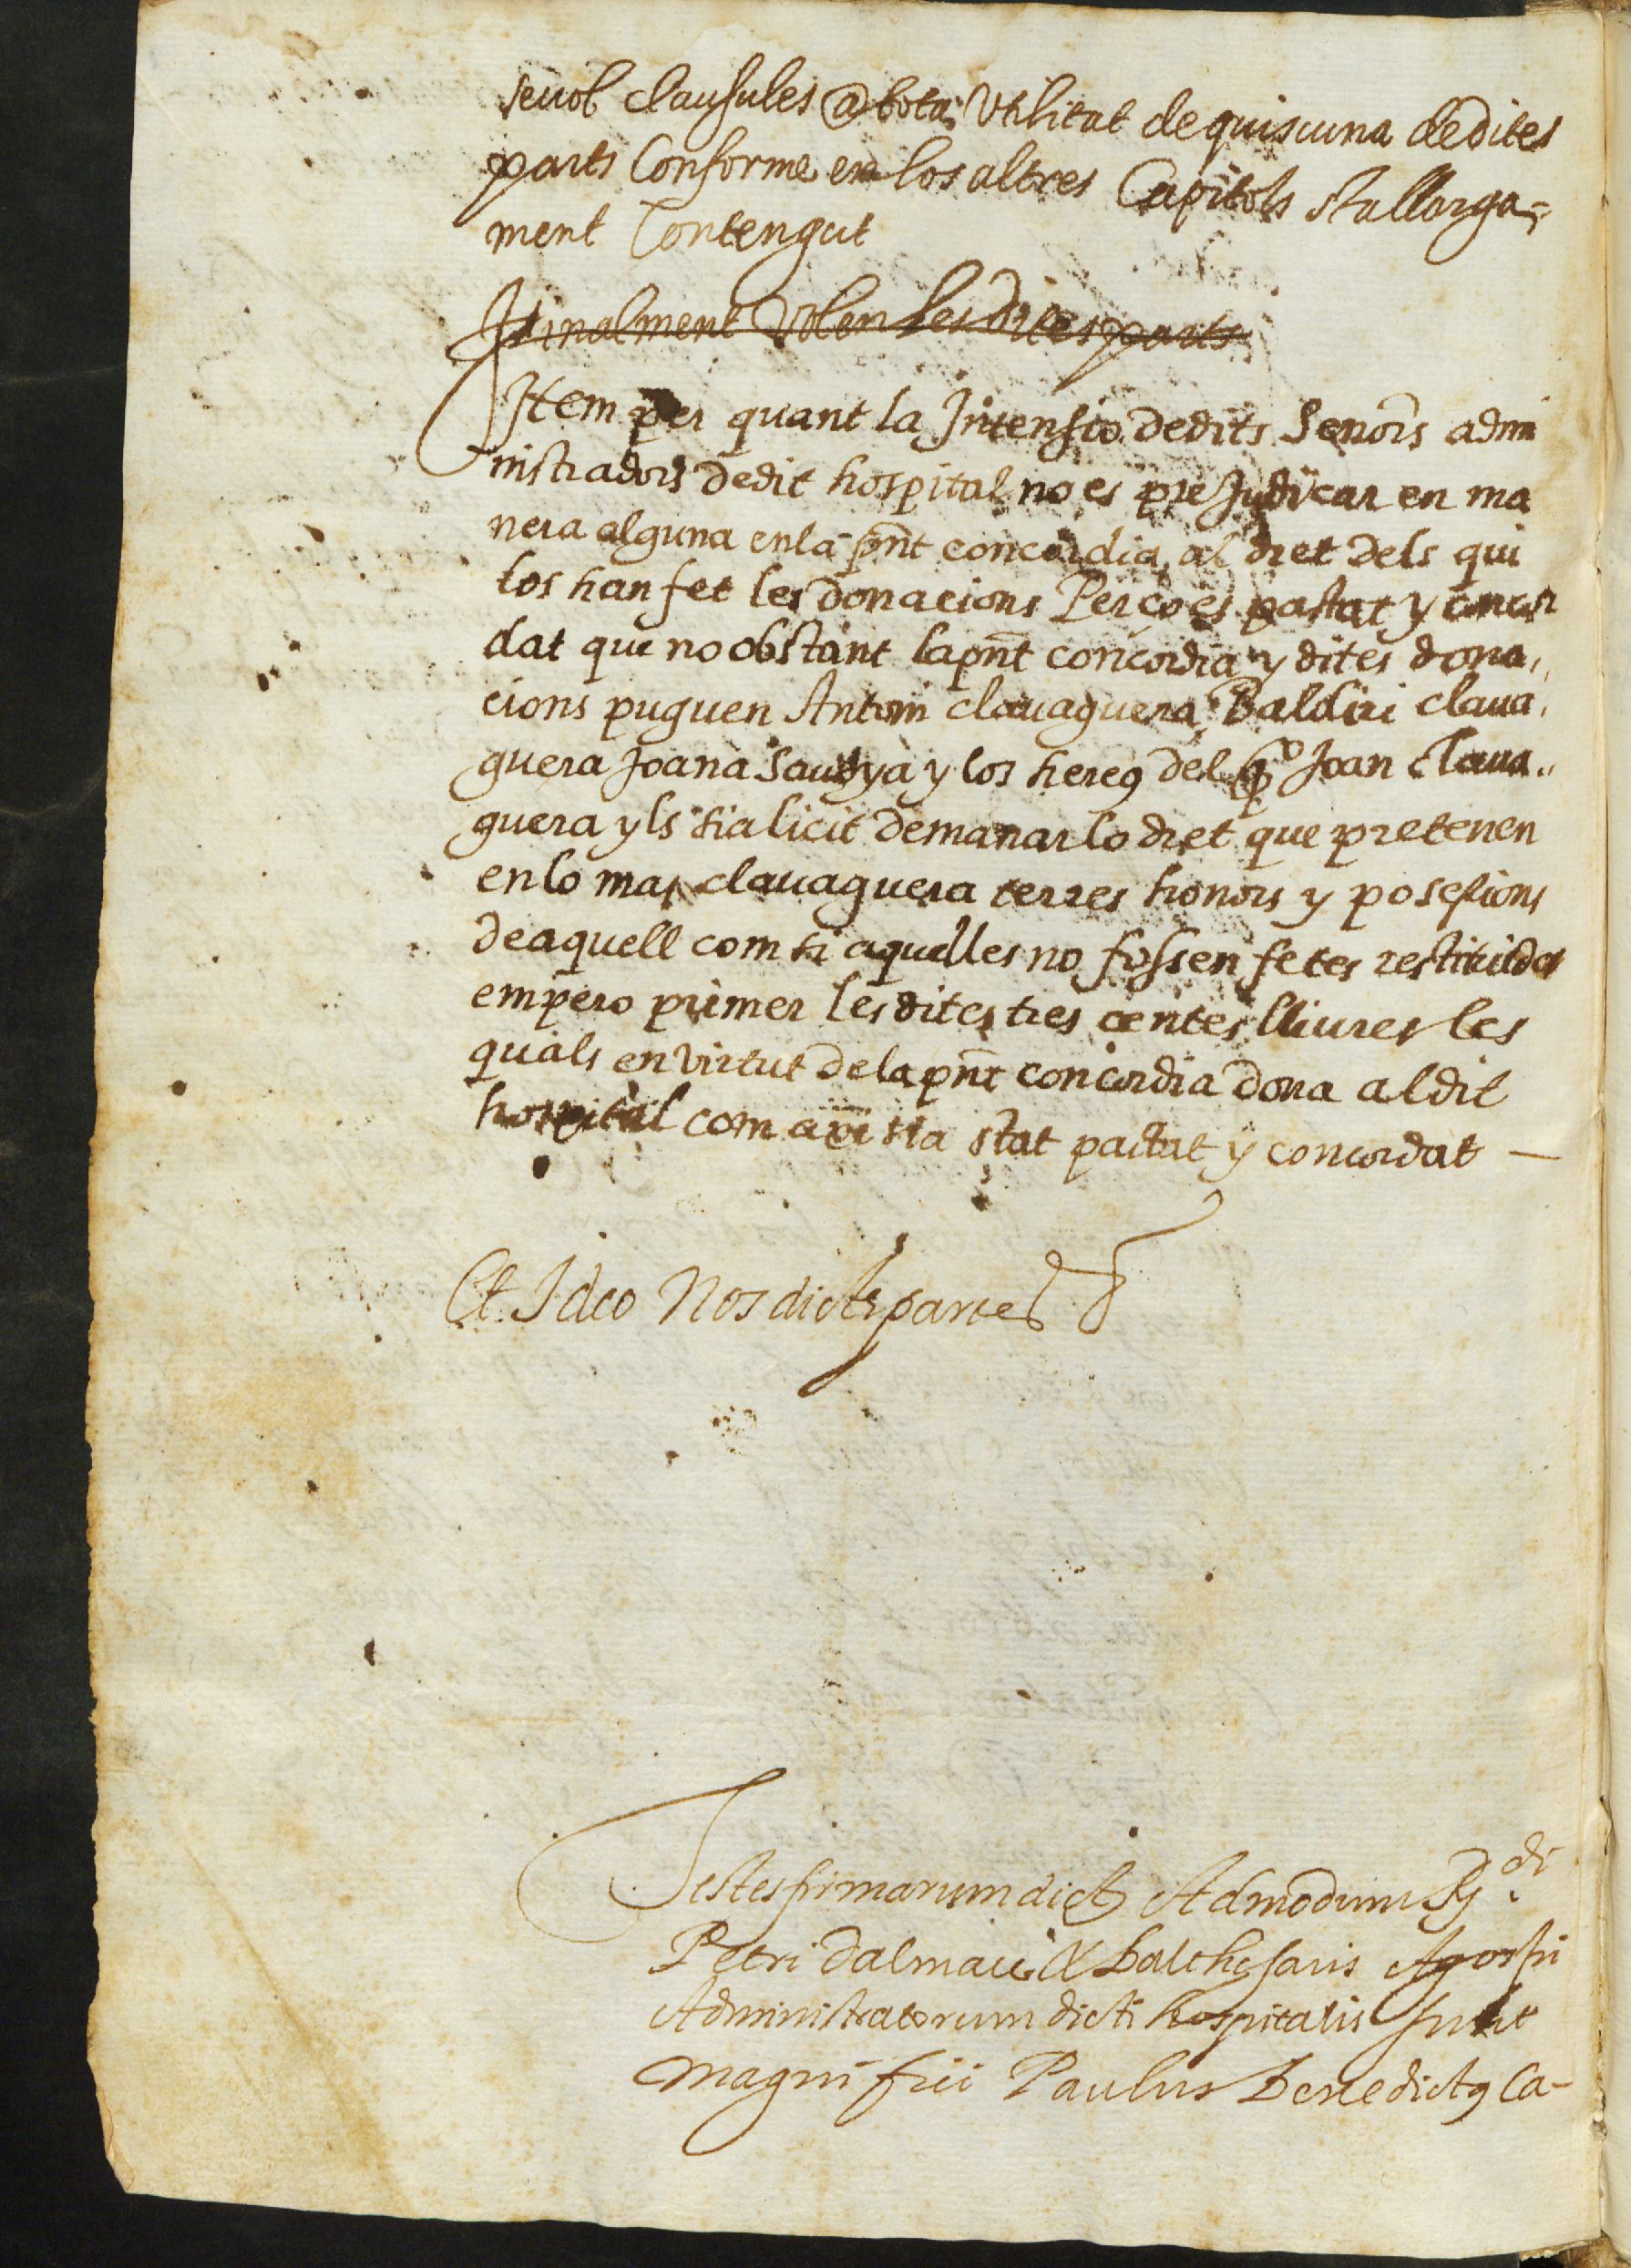 seuol clausules @ tota utilitat de quiscuna de dites
parts Conforme en los altres Capitols sta llarga-
ment Contengut
Finalment volen les dites parts
Item per quant la Intensio de dits Senors admi
nistradors de dit hospital no es preJudicar en ma
nera alguna en la pnt concordia al dret dels qui
los han fet les donacions Perço es pactat y concor
dat que no obstant la pnt concordia y dites dona,
cions puguen Antoni clauaguera Baldiri claua,
guera Joana Sauyà y los hereus del q° Joan Claua..
guera yls sia licit demanar lo dret que pretenen
en lo mas clauaguera terres honors y posesions
de aquell com si aquelles no fossen fetes restituides
empero primer les dites tres centes lliures les
quals en virtut de la pnt concordia dona al dit
hospital com axi sia stat pactat y concordat —
Et Ideo Nos dicte partes &
Testes firmarum dict Admodum Rdi
Petri dalmau & Balthesaris Agosti
Administratorum dicti hospitalis sunt
magnifici Paulus Benedictus Ca-